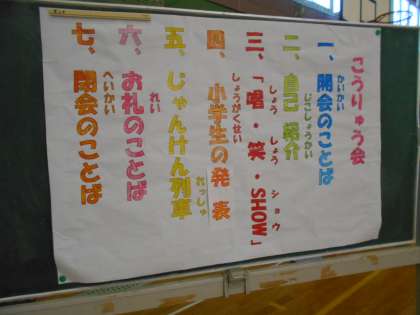 こうりゅう会
一、開会のことば
かいかい
二、自己紹介
じこしょうかい
三、「唱・笑・SHOW」
しょう しょう ショウ
四、小学生の発表
しょうがくせい
五、じゃんけん列車
れっしゃ
六、お礼のことば
れい
七、閉会のことば
へいかい